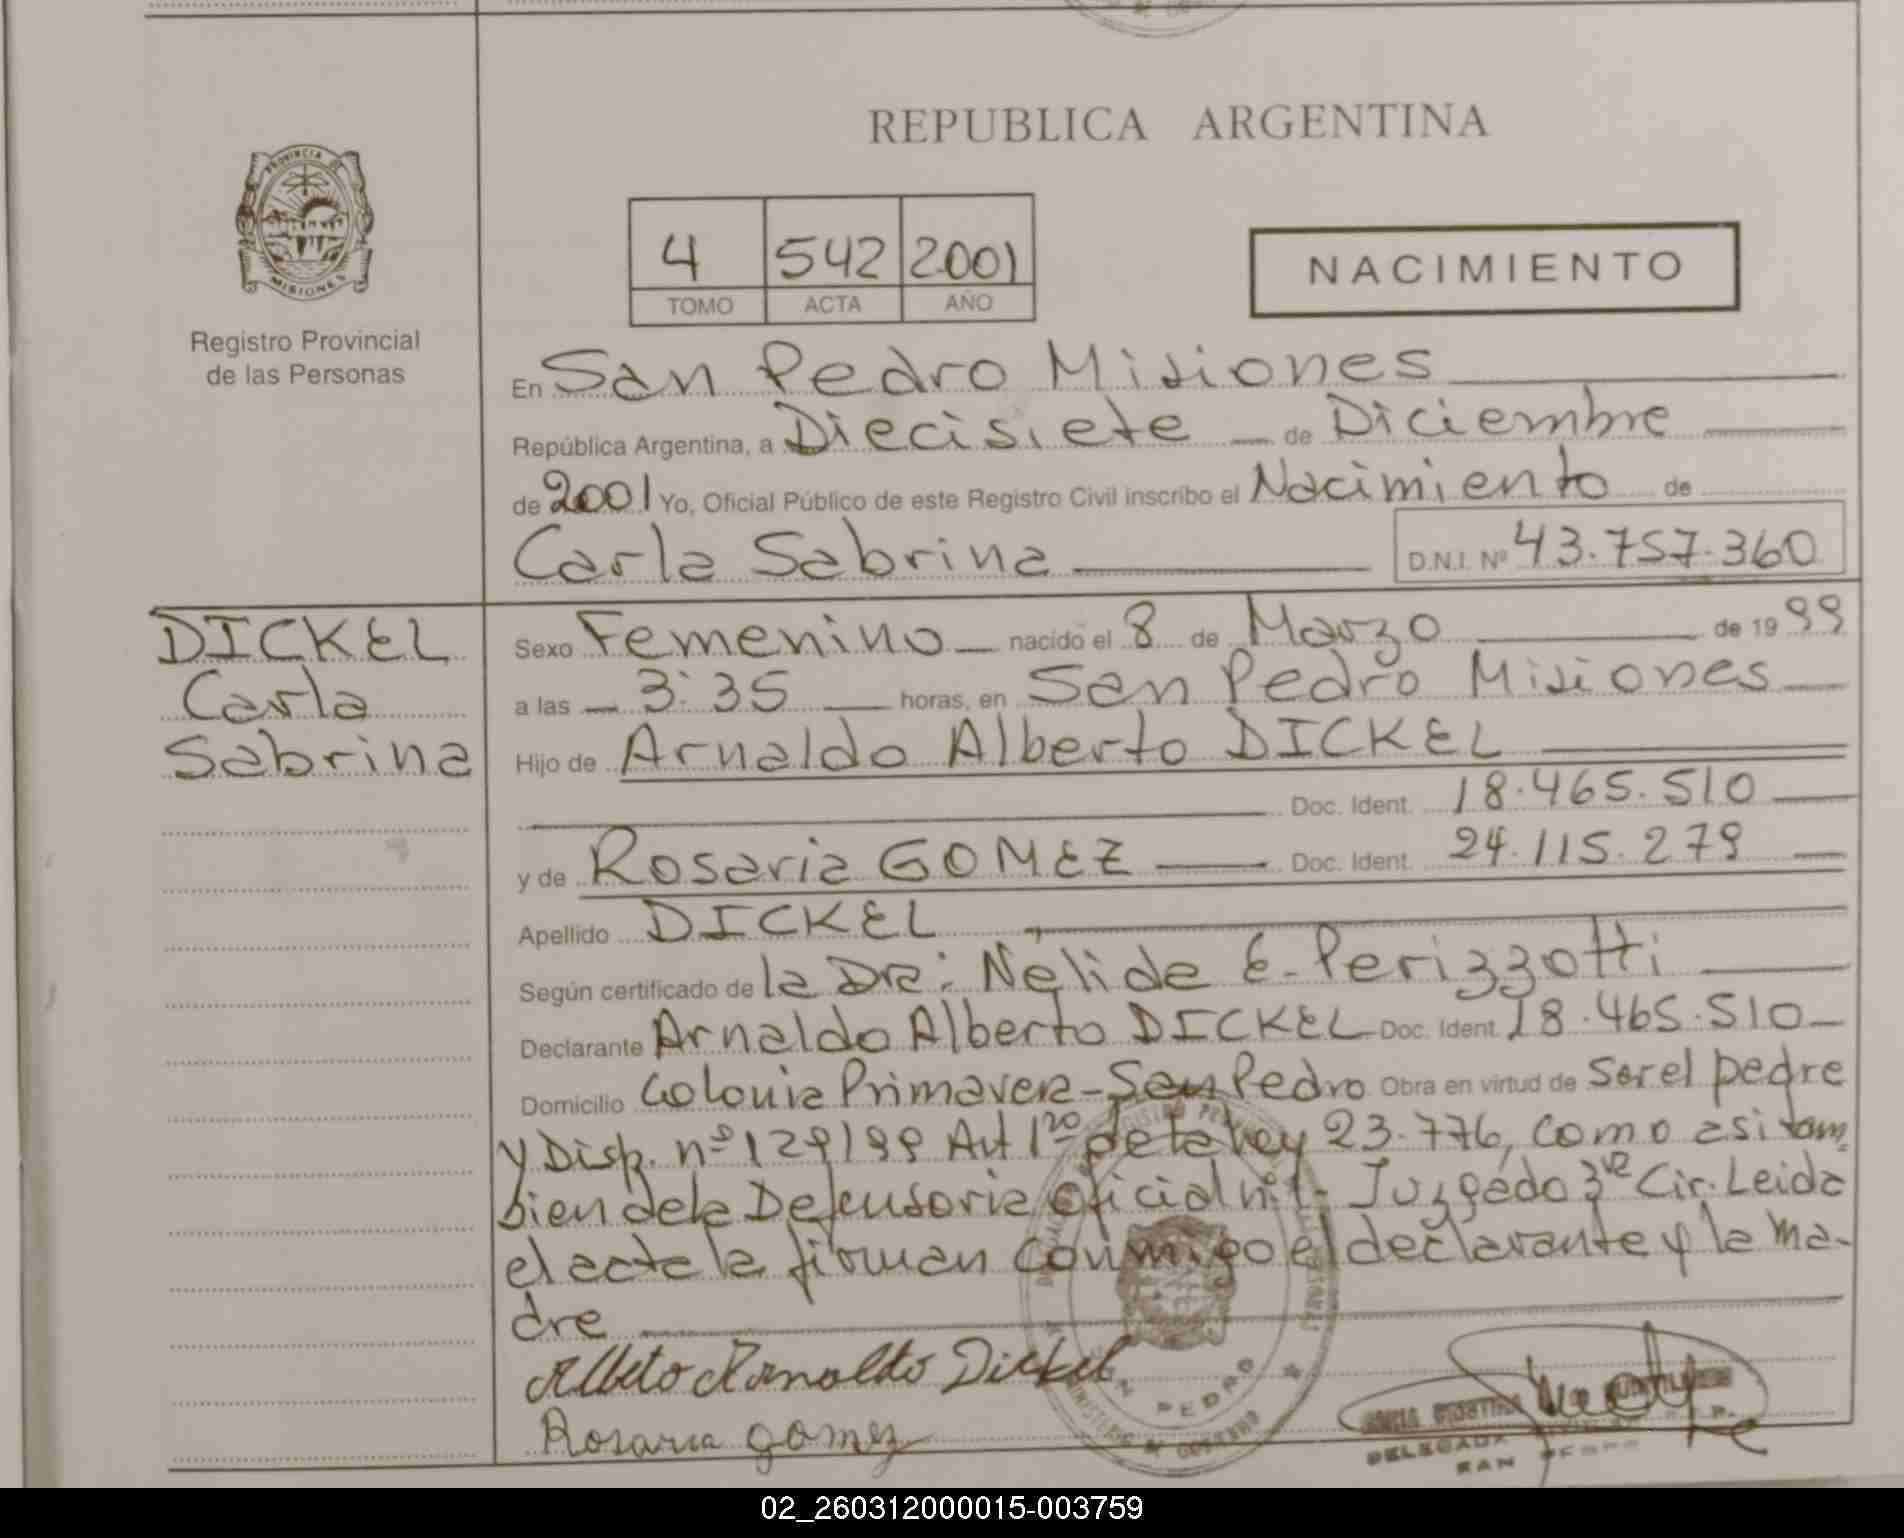 REPUBLICA ARGENTINA
PROVINCIA DE
MISIONES
Registro Provincial
de las Personas
4 542 2001
TOMO ACTA AÑO
NACIMIENTO
En San Pedro Misiones
República Argentina, a Diecisiete de Diciembre
de 2001 Yo, Oficial Público de este Registro Civil inscribo el Nacimiento de
Carla Sabrina D.N.I. Nº 43.757.360
DICKEL
Carla
Sabrina
Sexo Femenino nacido el 8 de Marzo de 1999
a las 3:35 horas, en San Pedro Misiones
Hijo de Arnaldo Alberto DICKEL
Doc. Ident. 18.465.510
y de Rosaria GOMEZ Doc. Ident. 24.115.279
Apellido DICKEL
Según certificado de la Dra: Nelida E. Perizzotti
Declarante Arnaldo Alberto DICKEL Doc. Ident. 18.465.510
Domicilio Colonia Primavera - San Pedro Obra en virtud de Ser el padre
y Disp. nº 129/99 Art 1ro de la ley 23.776, como asi tam
bien de la Defensoria Oficial nº1- Juzgado 3ra Cir. Leida
el acta la firman conmigo el declarante y la ma-
dre
Alberto Arnaldo Dickel
Rosaria gomez
SAN PEDRO
MINISTERIO DE GOBIERNO
DELEGADA
SAN PEDRO
02_260312000015-003759